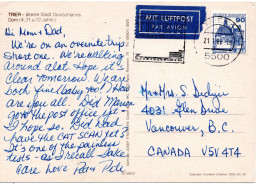 TRIER - älteste Stadt Deutschlands
Dom (4., 11. u. 12. Jahrh.)
MIT LUFTPOST
PAR AVION
90
5500
Hi Mom & Dad,
We're on an overnite trip
Short one. We're walking
around alot Hope it's
clear tomorrow. We are
both fine! How bout you? How
are you all. Did Mom
go to the post office yet
I hope so. Did Dad
have the CAT SCAN yet?
It's one of the painless
tests - as I recall. Take
care love Pam Pete
Mr & Mrs S
4031 Glen Drive
Vancouver, B.C.
CANADA V5V 4T4